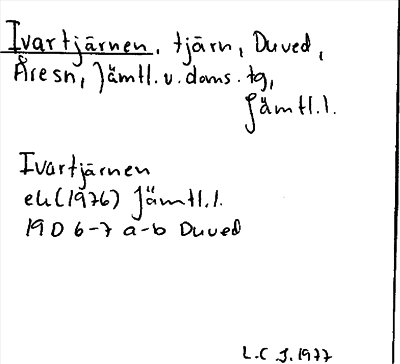 Ivartjärnen, tjärn, Duved,
Åresn, Jämtl.v.doms.tg,
Jämtl.l.
Ivartjärnen
ek(1976) Jämtl.l.
19D 6-7 a-b Duved
L.C.J.1977